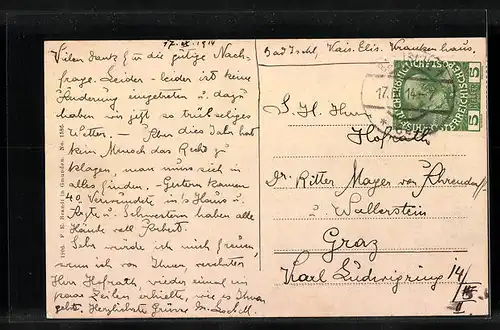 17. IX. 1914
Bad Ischl, Kais. Elis. Krankenhaus.
Vielen Dank für die gütige Nach-
frage. Leider - leider ist keine
Änderung eingetreten u. dazu
haben wir jetzt so trübseliges
Wetter. - Aber dies Jahr hat
kein Mensch das Recht zu
klagen, man muss sich in
alles finden. - Gestern kamen
40 Verwundete in's Haus u.
Ärzte u. Schwestern haben alle
Hände voll Arbeit.
Sehr würde ich mich freuen,
wenn ich von Ihnen, verehrter
Herr Hofrath, wieder einmal ein
paar Zeilen erhielte, wie es Ihnen
geht. Herzlichste Grüsse
S. H. Herrn
Hofrath
Dr. Ritter Mayer von Ahrendorff
u Wallerstein
Graz
Karl Ludwigring 14/
II
1910. F. E. Brandt in Gmunden. No. 1595.
5
5
17.
14